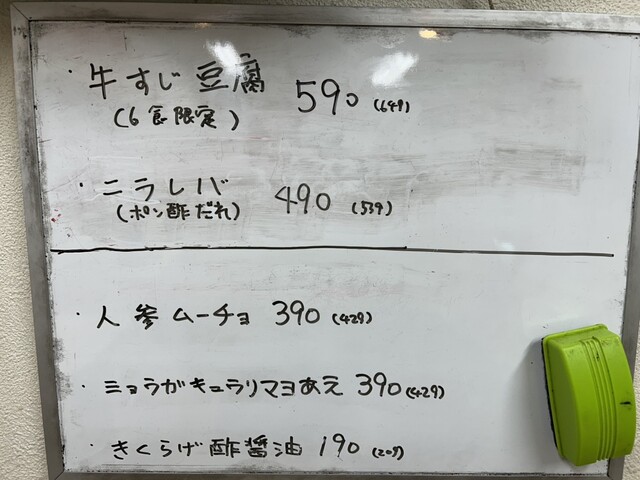 ・牛すじ豆腐 590 (649)
(6食限定)
・ニラレバ 490 (539)
(ポン酢だれ)
・人参ムーチョ 390 (429)
・ミョウガキュウリマヨあえ 390 (429)
・きくらげ酢醤油 190 (209)